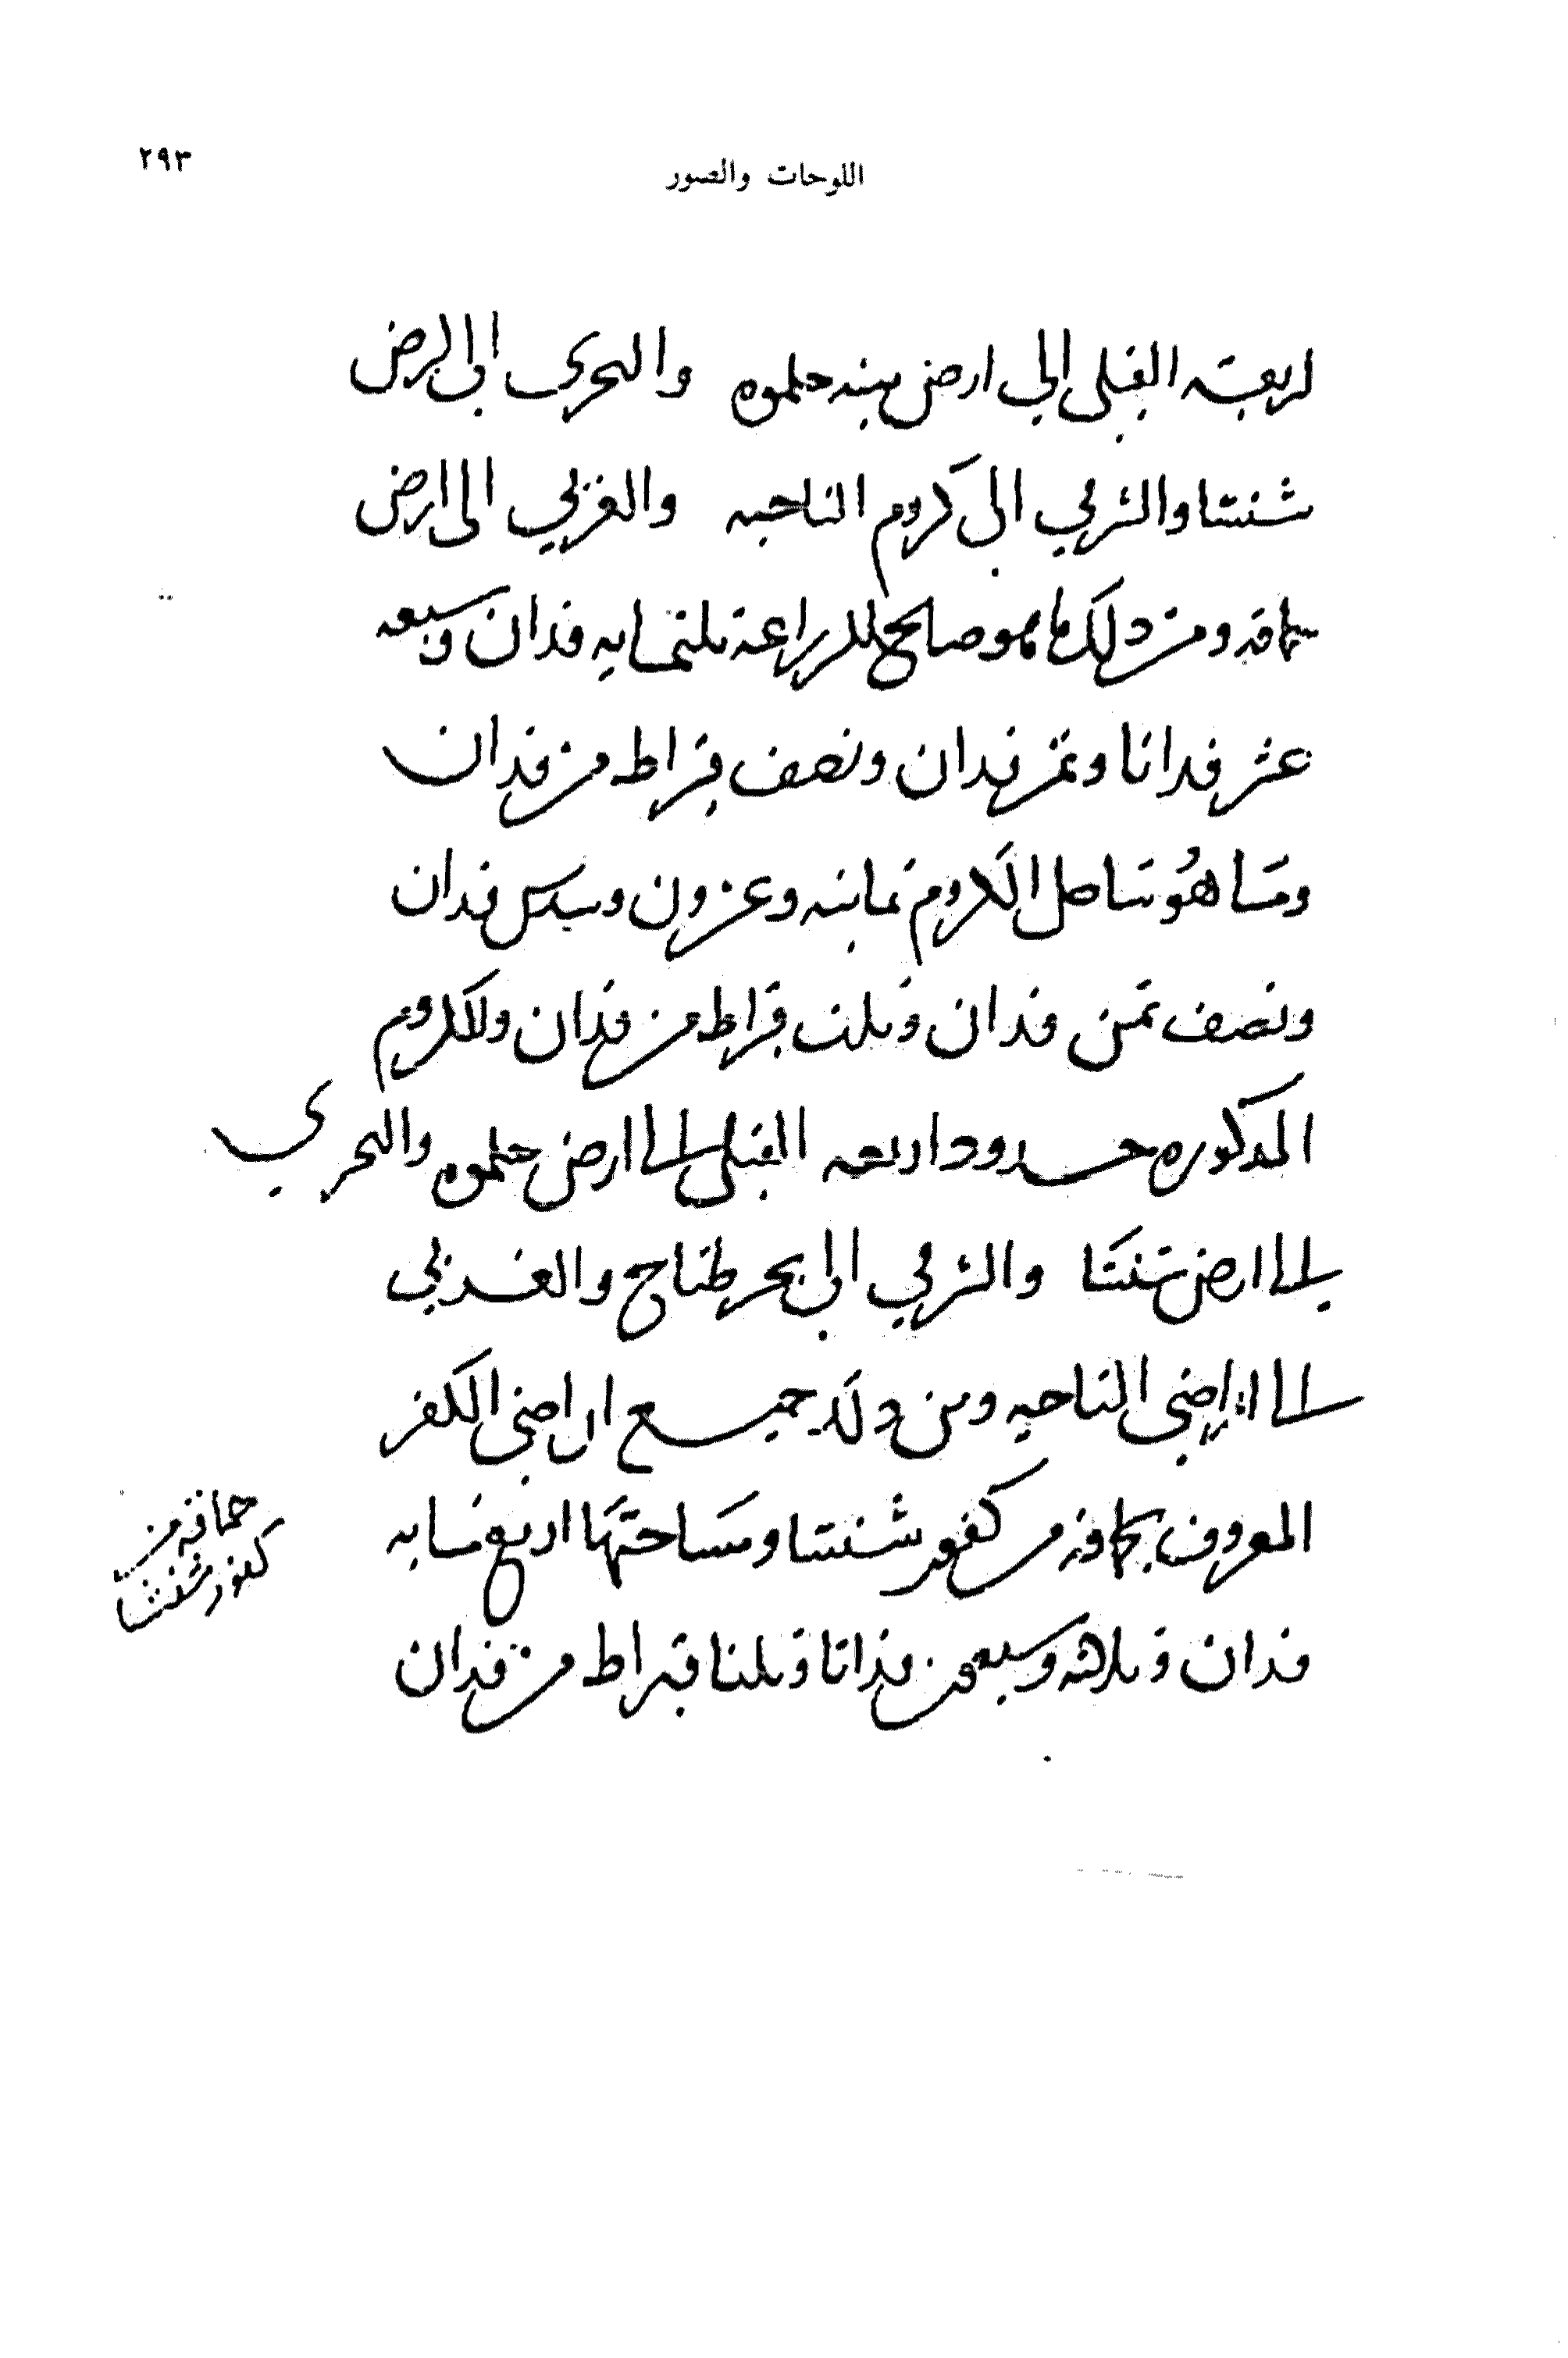 ٢٩٣
اللوحات والصور
اربعة القبلى الى ارض منية حلموه والبحري الى ارض
شنشا والشرقي الى كروم الناحيه والغربي الى ارض
ومن ذلك ما هو صالح للزراعة ثلثمايه فدان وسبعه
عشر فدانا وثمن فدان ونصف قيراط من فدان
وما هو شاطى الكروم ثمانيه وعشرون وسدس فدان
ونصف ثمن فدان وثلث قيراط من فدان وللكروم
المذكوره حدود اربعه القبلى الى ارض حلموه والبحري
الى ارض شنشا والشرقي الى بحر طناح والغربي
الى اراضى الناحيه ومن ذلك جميع اراضى الكفر
المعروف من كفور شنشا ومساحتها اربع مايه
فدان وثلاثه وسبعون فدانا وثلثا قيراط من فدان
من
كفور شنشا